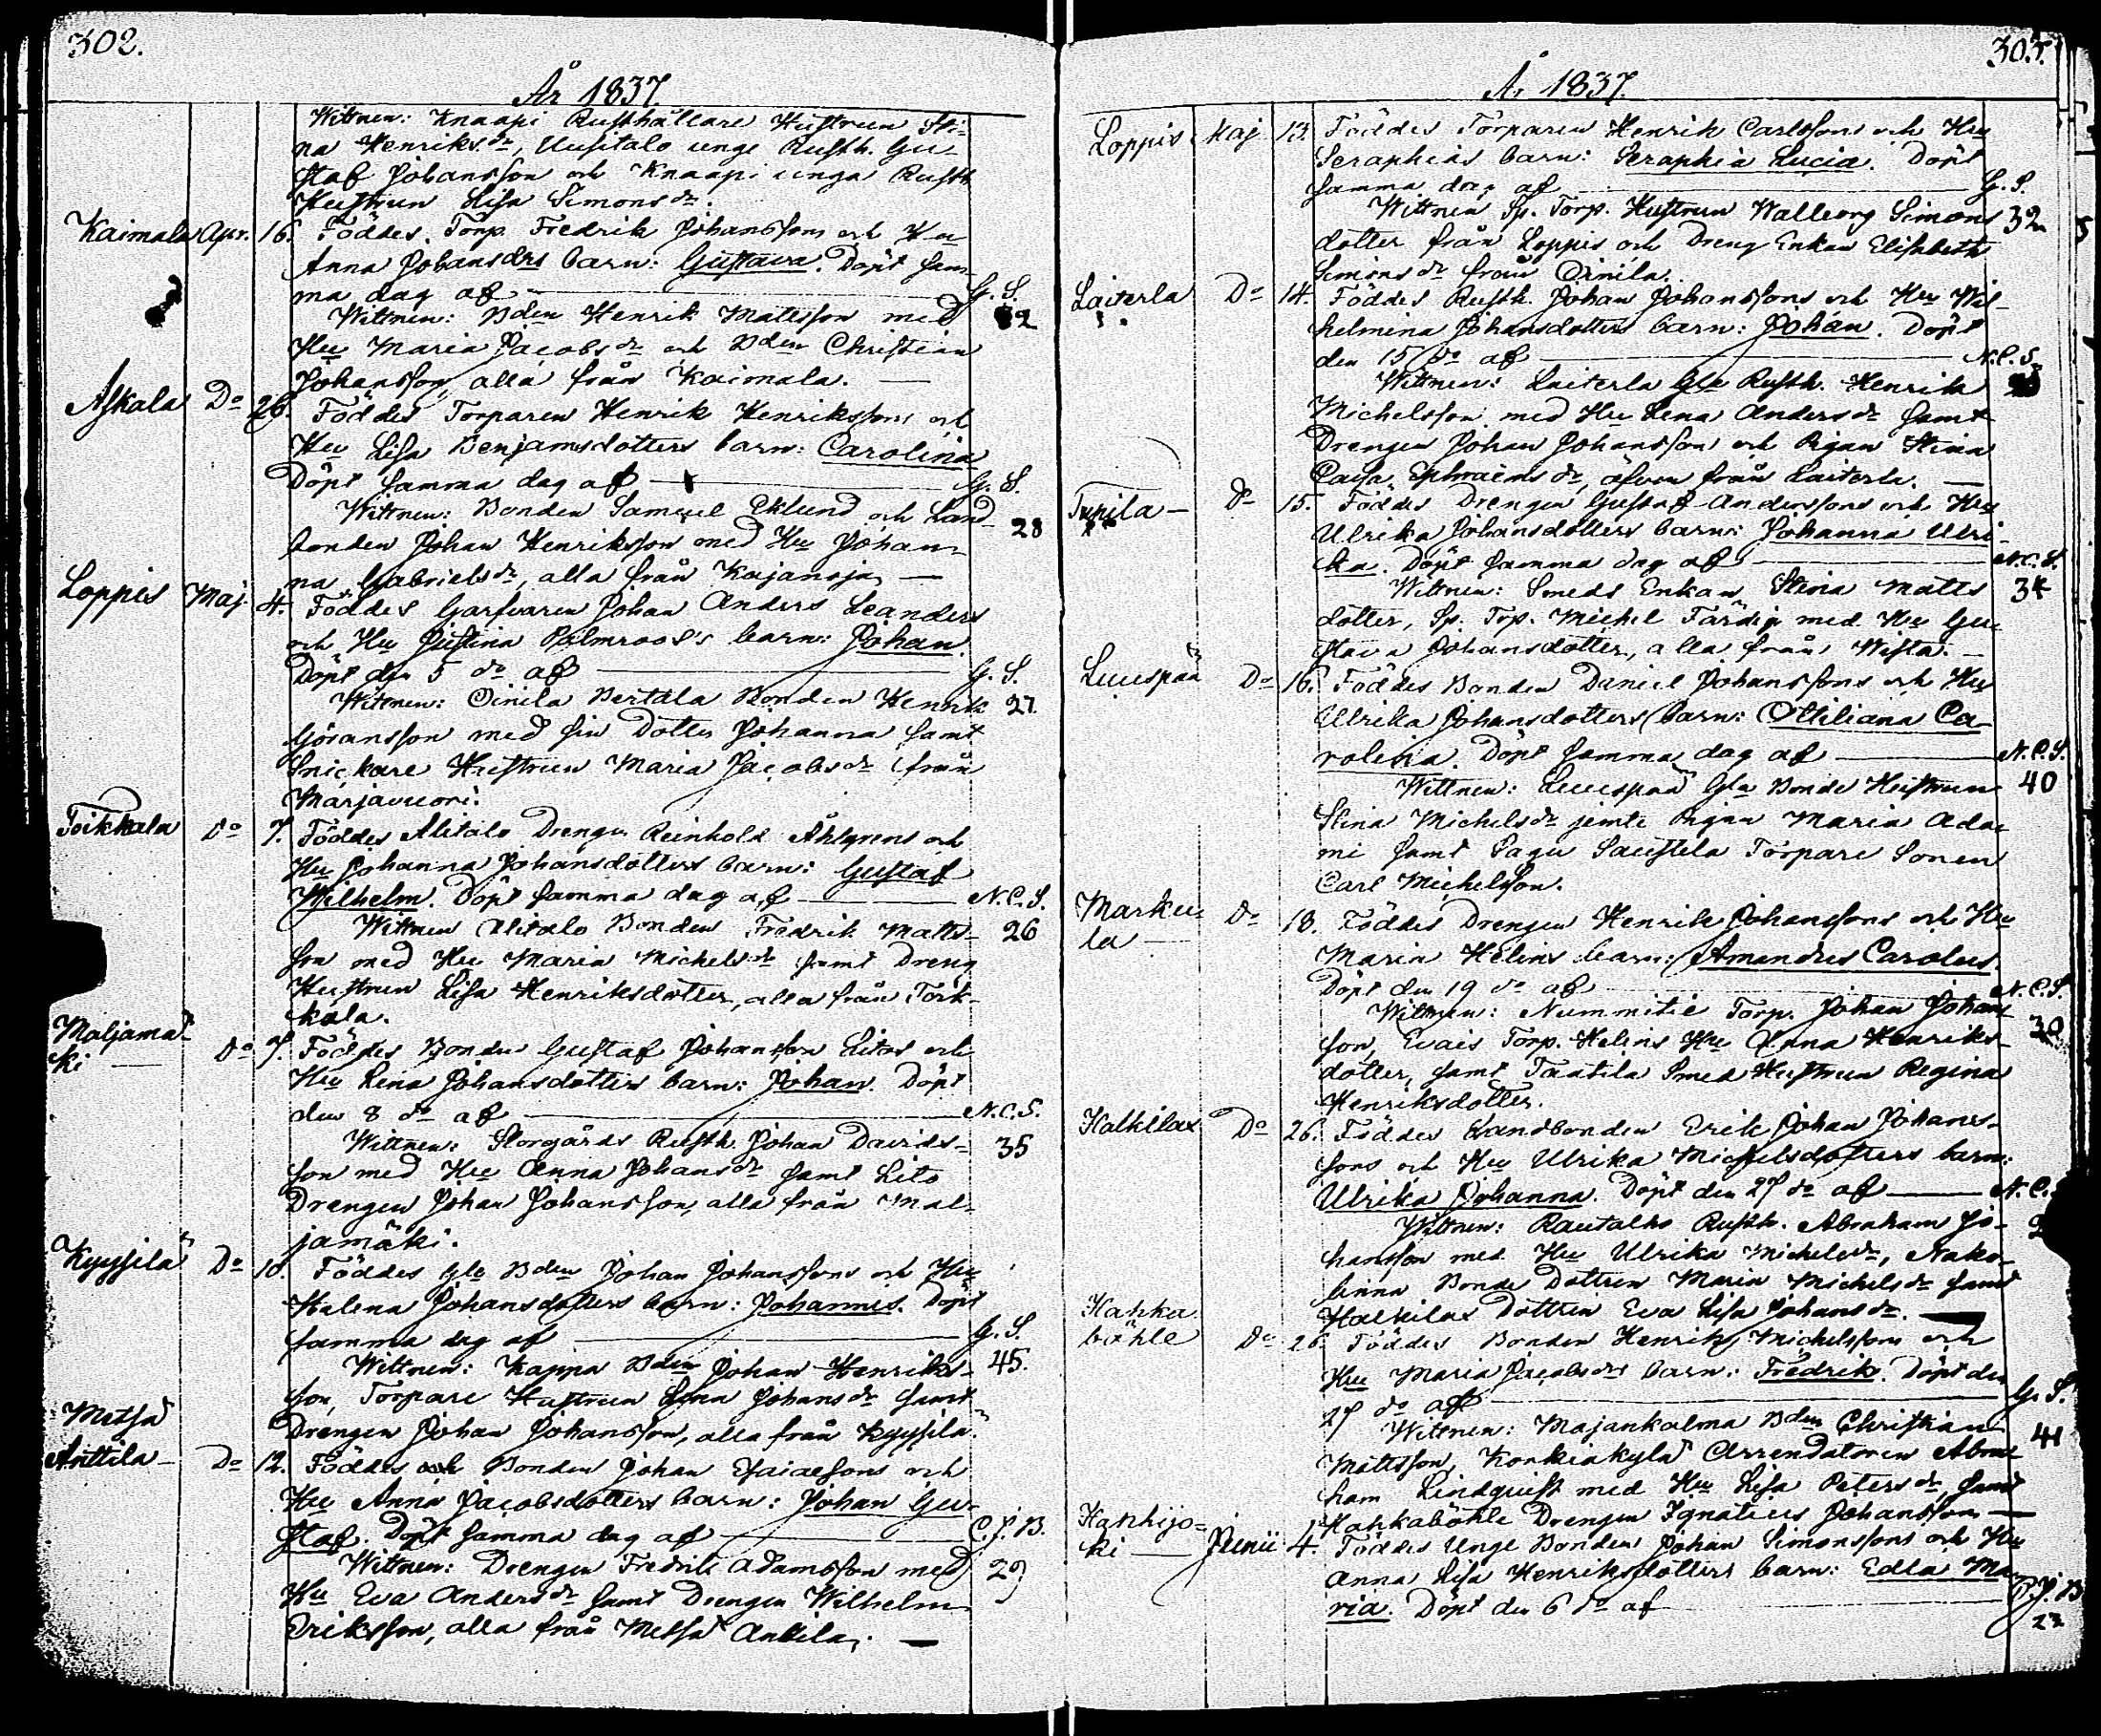 302.
År 1837.
Wittnen: Knaapi Rusthållare Hustrun Sti-
na Henriksdr, Uusitalo unge Rusth. Gu-
staf Johansson och Knaapi unga Rusth
Hustrun Lisa Simonsdr.
Kaimala Apr. 16. Föddes Torp. Fredrik Johanssons och Hu
Anna Johansdrs barn: Gustava. Döpt sam-
ma dag af — G. S.
Wittnen: Bden Henrik Mattsson med 32
Hu Maria Jacobsdr och Bden Christian
Johansson, alla från Kaimala. —
Askala Do 26. Föddes Torparen Henrik Henrikssons och
Hu Lisa Benjamsdotters barn: Carolina
Döpt samma dag af — G. S.
Wittnen: Bonden Samuel Eklund och Land- 28
bonden Johan Henriksson med Hu Johan-
na Gabrielsdr, alla från Kajanoja —
Loppis Maj. 4. Föddes Garfvaren Johan Anders Leanders
och Hu Justina Palmroos's barn: Johan.
Döpt den 5 do af — G. S.
Wittnen: Oinila Bertala Bonden Henrik 27.
Göransson med sin Dotter Johanna samt
Snickare Hustrun Maria Jacobsdr från
Marjavuori.
Toikkala do 7. Föddes Alitalo Drengen Reinhold Åhlgrens och
Hu Johanna Johansdotters barn: Gustaf
Wilhelm. Döpt samma dag af — N.C.S.
Wittnen Alitalo Bonden Fredrik Matts- 26
son med Hu Maria Michelsdr samt Dreng
Hustrun Lisa Henriksdotter, alla från Toik-
kala.
Maljamä-
ki — do 7. Föddes Bonden Gustaf Johansson Litos och
Hu Lena Johansdotters barn: Johan. Döpt
den 8 do af — N.C.S.
Wittnen: Storgårds Rusth Johan Davids- 35
son med Hu Anna Johansdr samt Lito
Drengen Johan Johansson, alla från Mal-
jamäki.
Kyysilä Do 10. Föddes Gle Bden Johan Johanssons och Hu
Halena Johansdotters barn: Johannes. Döpt
samma dag af — G. S.
Wittnen: Kappa Bden Johan Henriks- 45.
son, Torpare Hustrun Lena Johansdr samt
Drengen Johan Johansson, alla från Kyysilä.
Metsä
Anttila — Do 12. Föddes och Bonden Johan Esaiaesons och
Hu Anna Jacobsdotters barn: Johan Gu-
staf. Döpt samma dag af — C. J. B.
Wittnen: Drengen Fredrik Adamsson med 29
Hu Eva Andersdr samt Drengen Wilhelm
Eriksson, alla från Metsä Antila. —
303.
År 1837.
Loppis Maj 13. Föddes Torparen Henrik Carlssons och Hu
Seraphias barn: Seraphia Lucia. Döpt
samma dag af — G. S.
Wittnen Sp. Torp. Hustrun Walborg Simons 32
dotter från Loppis och Dreng Enkan Elisabeth
Simonsdr från Oinila.
Laiterla Do 14. Föddes Rusth. Johan Johanssons och Hu Wil-
helmina Johansdotters barn: Johan. Döpt
den 15 do af — N.C.S.
Wittnen: Laiterla Gle Rusth. Henrik
Michelsson med Hu Lena Andersdr samt
Drengen Johan Johansson och Pigan Stina
Caisa Ephraimsdr, äfven från Laiterla. —
Topila — do 15. Föddes Drengen Gustaf Anderssons och Hu
Ulrika Johansdotters barn: Johanna Ulri-
ka. Döpt samma dag af — N.C.S.
Wittnen: Smeds Enkan Stina Matts 34
dotter, Sp. Torp. Michel Färdig med Hu Gu-
stava Johansdotter, alla från Wista. —
Luuspää Do 16. Föddes Bonden Daniel Johanssons och Hu
Ulrika Johansdotters barn: Ottiliana Ca-
rolina. Döpt samma dag af — N.C.S.
Wittnen: Luuspää Gla Bonde Hustrun 40
Stina Michelsdr jemte Pigan Maria Ada-
mi samt Sagu Saustela Torpare Sonen
Carl Michelsson.
Marku-
la — do 18. Föddes Drengen Henrik Johanssons och Hu
Maria Helins barn: Amandus Carolus.
Döpt den 19 do af — N.C.S.
Wittnen: Nummitie Torp. Johan Johans- 30
son, Evais Torp. Helins Hu Anna Henriks-
dotter, samt Taatila Smed Hustrun Regina
Henriksdotter.
Halkilax Do 26. Föddes Landbonden Erik Johan Johans-
sons och Hu Ulrika Michelsdotters barn:
Ulrika Johanna. Döpt den 27 do af — N.C.
Wittnen: Rautalho Rusth. Abraham Jo-
hansson med Hu Ulrika Michelsdr, Nako-
linna Bonde Dottren Maria Michelsdr samt
Halkilax Dottren Eva Lisa Johansdr. —
Hapka
böhle Do 26. Föddes Bonden Henrik Michelssons och
Hu Maria Jacobsdrs barn: Fredrik. Döpt den
27 do af — G. S.
Wittnen: Majankalma Bden Christian 41
Mattsson, Konkiakylä Arrendatoren Abra-
ham Lindquist med Hu Lisa Petersdr samt
Hapkaböhle Drengen Ignatius Johansson —
Hanhijo-
ki — Junii 4. Föddes Unge Bonden Johan Simonssons och Hu
Anna Lisa Henriksdotters barn: Edla Ma-
ria. Döpt den 6 do af — C. J. B.
22